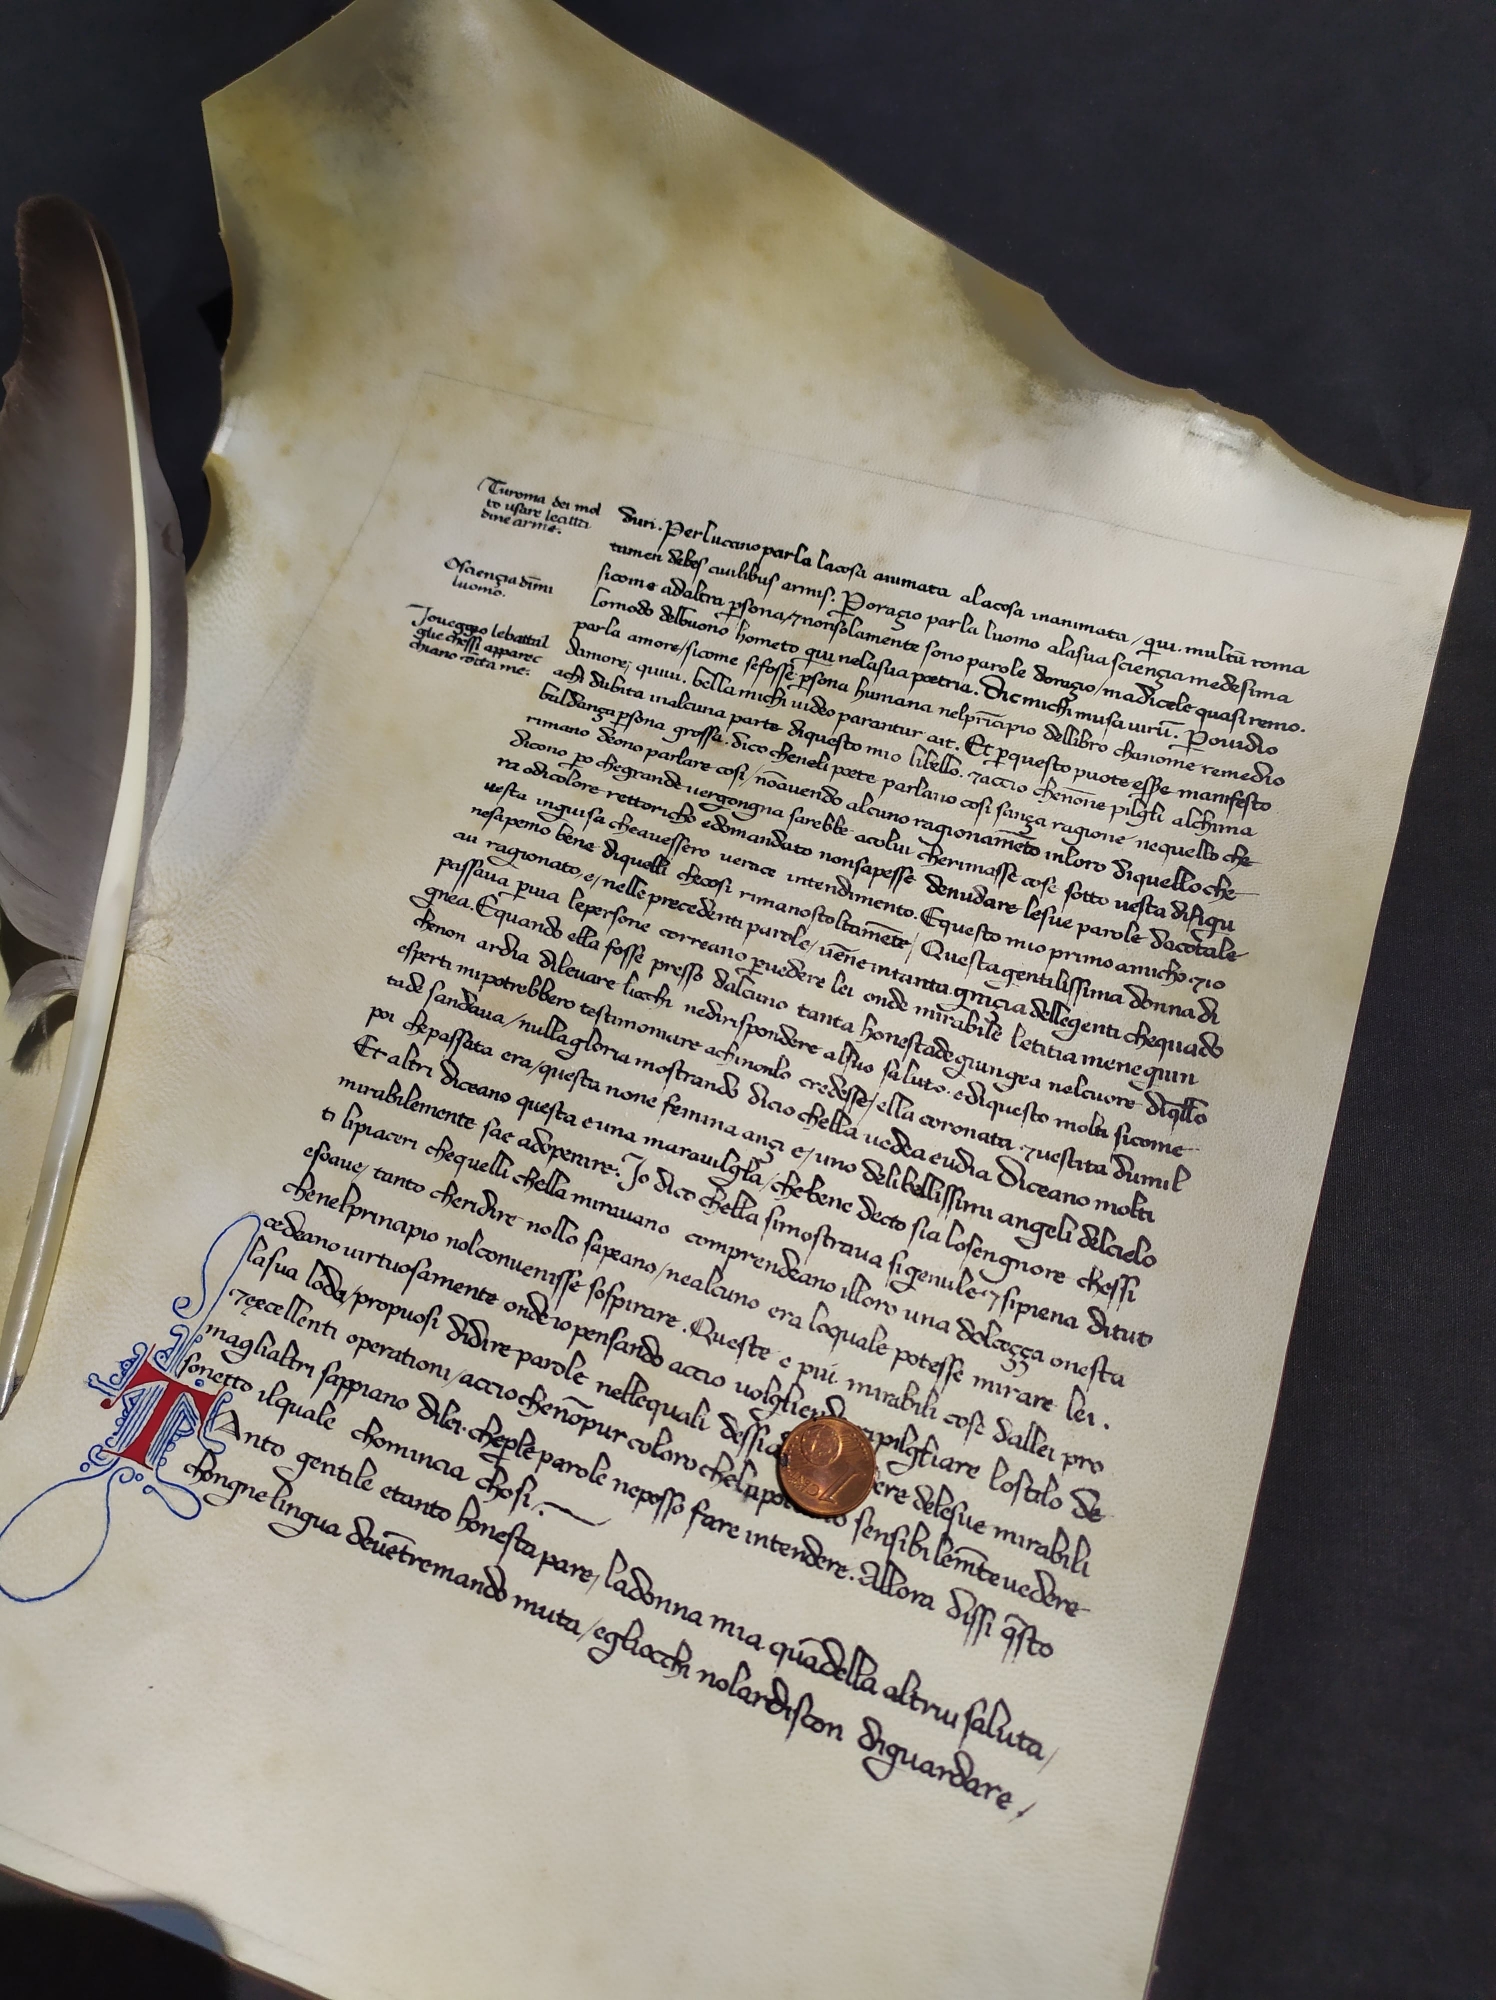 Turoma dei mol
to usare lecitta
dine arme.
Osciença dimi
luomo.
Joueggio lebattal
glie chessi apparec
chiano cōtta me.
duri. Per lucano parla lacosa animata alacosa inanimata / qui. multū roma
tamen debes ciuilibus armis. P oraçio parla luomo alasua sciençia medesima
sicome adaltra psona / 7 nonsolamente sono parole doraçio / madicele quasi remo.
lomodo delbuono hometo qui nelasua poetria. Dic michi musa uirū. P ouidio
parla amore / sicome sefosse psona humana nelprīcipio dellibro chanome remedio
damore; quiui. bella michi uideo parantur ait. Et pquesto puote esse manifesto
achi dubita inalcuna parte diquesto mio libello. 7 accio chenōne pilgli alchuna
baldança psona grossa. dico cheneli poete parlano cosi sança ragione nequello che
rimano deono parlare cosi / nōauendo alcuno ragionamēto inloro diquello che
dicono po chegrande uergongna sarebbe acolui cherimasse cose sotto uesta difigu
ra odicolore rettoricho edomandato nonsapesse denudare lesue parole dacotale
uesta inguisa cheauessero uerace intendimento. Equesto mio primo amicho 7 io
nesapemo bene diquelli checosi rimano stoltamēte / Questa gentilissima donna di
cui ragionato e / nelle precedenti parole / uēne intanta graçia dellegenti chequādo
passaua puia lepersone correano puedere lei onde mirabile letitia mene giun
gnea. Equando ella fosse presso dalcuno tanta honestade giungea nelcuore diqllo
chenon ardia dileuare liocchi nedirispondere alsuo saluto. ediquesto molti sicome
esperti mipotrebbero testimoniare achinonlo credesse / ella coronata 7 uestita dumil
tade sandaua / nulla gloria mostrando dicio chella uedea eudia Diceano molti
poi chepassata era / questa none femina ançi e / uno delibellissimi angeli delcielo
Et altri diceano questa e una marauilglia / chebene decto sia losengnore chessi
mirabilemente sae adoperare. Jo dico chella simostraua si gentile 7 sipiena ditut
ti lipiaceri chequelli chella mirauano comprendeano illoro una dolceçça onesta
esoaue / tanto cheridire nollo sapeano / nealcuno era loquale potesse mirare lei.
chenelprincipio nolconuenisse sospirare. Queste e piu mirabili cose dallei pro
cedeano uirtuosamente onde io pensando accio uolgliend pilgliare lostilo de
lasua loda / propuosi didire parole nellequali dessi ere delesue mirabili
7 excellenti operationi / accio chenōpur coloro chela po o sensibilemēte uedere
magliatri sappiano dilei. cheple parole neposso fare intendere. Allora dissi qsto
sonetto ilquale chomincia chosi.
TAnto gentile etanto honesta pare, ladonna mia quādella altrui saluta /
chongne lingua deuētremando muta / egliocchi nolardiscon diguardare /
1 CENT